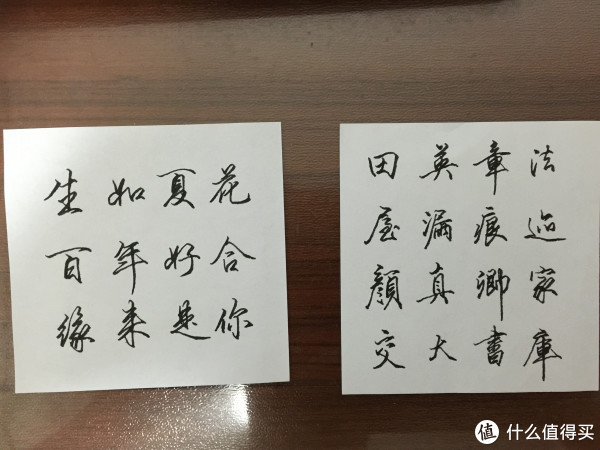 生如夏花
百年好合
缘来是你
田英章法
屋漏痕迹
顔真卿家
交大書庫
值 什么值得买